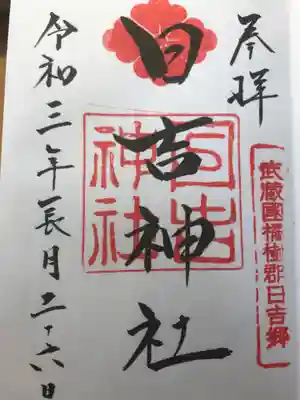 奉拝
武蔵國橘樹郡日吉郷
日吉神社
日吉
神社
令和三年長月二十六日